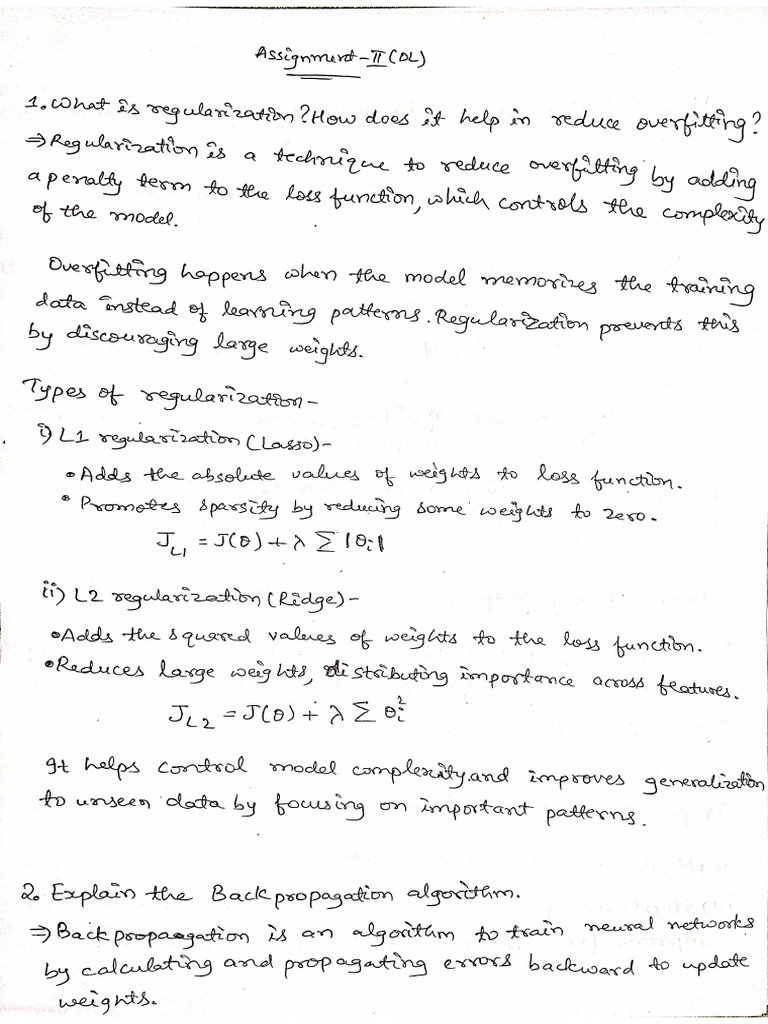 Assignment-II (DL)
1. What is regularization? How does it help in reduce overfitting?
⇒ Regularization is a technique to reduce overfitting by adding
a penalty term to the loss function, which controls the complexity
of the model.
Overfitting happens when the model memorizes the training
data instead of learning patterns. Regularization prevents this
by discouraging large weights.
Types of regularization-
i) L1 regularization (Lasso)-
• Adds the absolute values of weights to loss function.
• Promotes sparsity by reducing some weights to zero.
J_L1 = J(θ) + λ Σ |θi|
ii) L2 regularization (Ridge)-
• Adds the squared values of weights to the loss function.
• Reduces large weights, distributing importance across features.
J_L2 = J(θ) + λ Σ θi²
It helps control model complexity and improves generalization
to unseen data by focusing on important patterns.
2. Explain the Back propagation algorithm.
⇒ Back propagation is an algorithm to train neural networks
by calculating and propagating errors backward to update
weights.